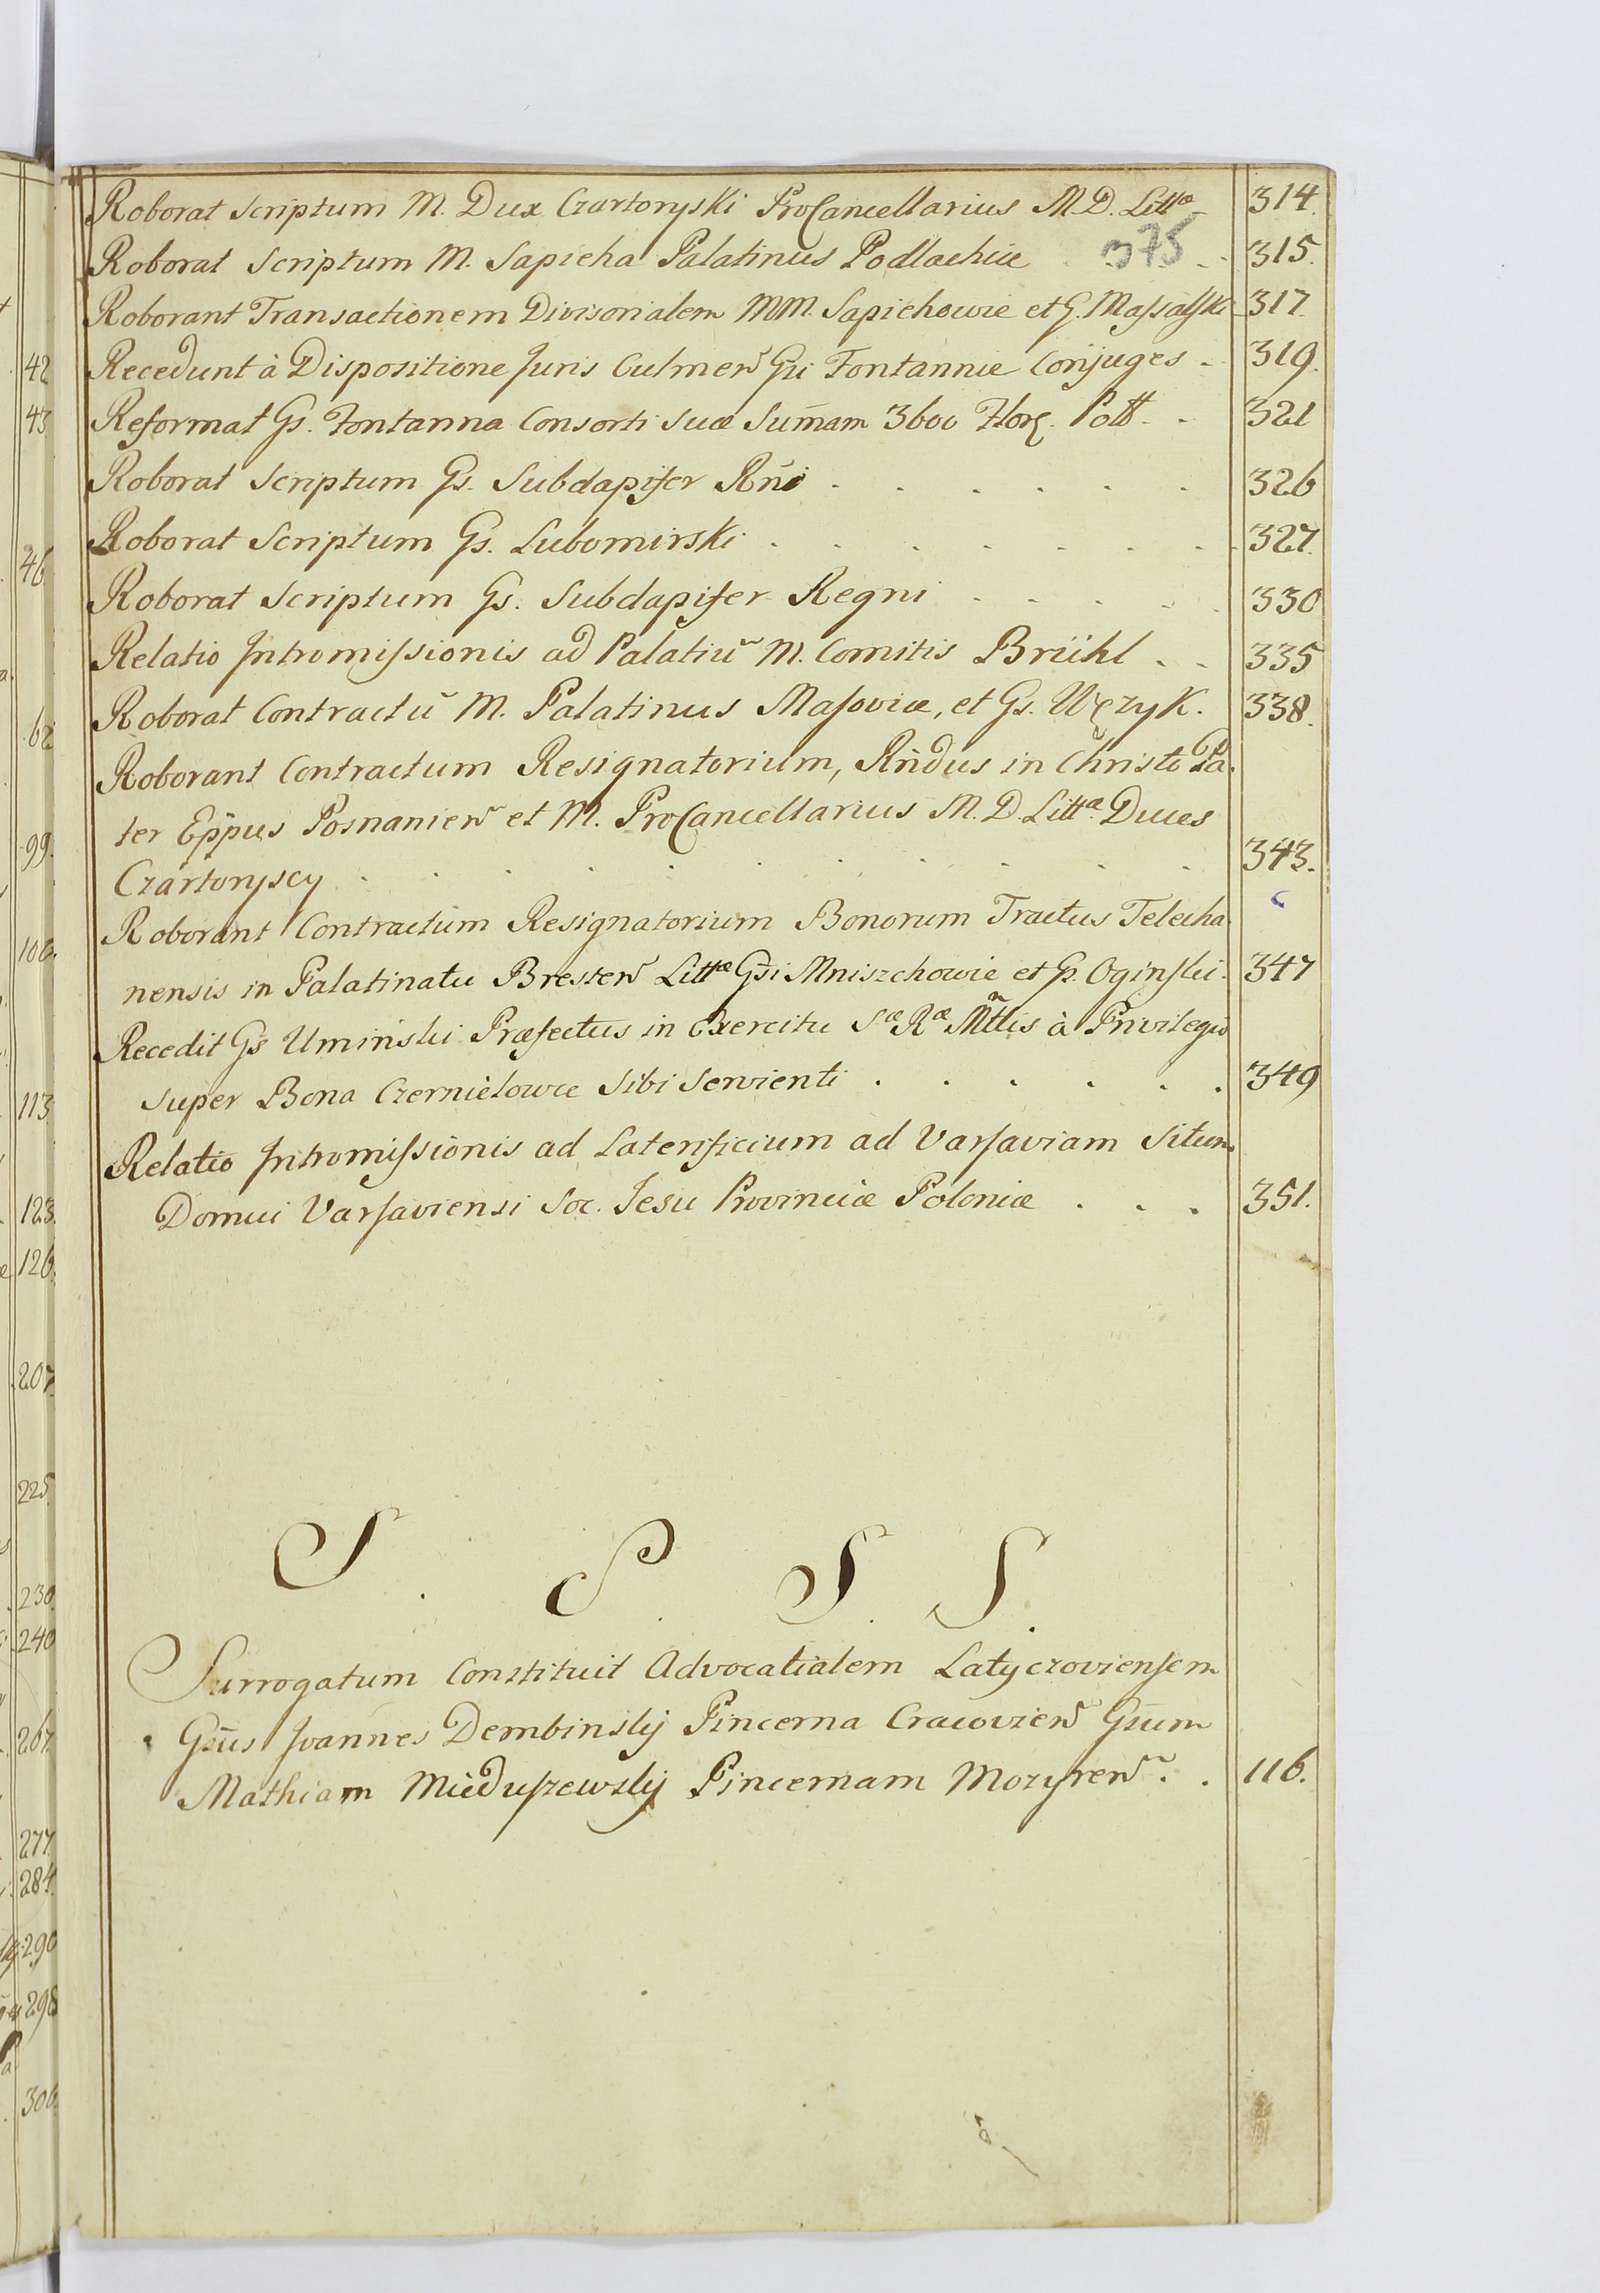 Roborat Scriptum M. Dux Czartoryski ProCancellarius M.D. Littæ 314.
375
Roborat Scriptum M. Sapieha Palatinus Podlachiæ . . . 315.
Roborant Transactionem Divisorialem MM. Sapiehowie et G. Massalski 317.
Recedunt à Dispositione Juris Culmeñ Gñi Fontannie Conjuges . . 319.
Reformat Gs. Fontanna Consorti suæ Sum̃am 3600 Flor. Poll . . 321
Roborat Scriptum Gs. Subdapifer Rñi . . . . . . 326
Roborat Scriptum Gs. Lubomirski . . . . . . . 327.
Roborat Scriptum Gs. Subdapifer Regni . . . . . 330
Relatio Intromissionis ad Palatiũ M. Comitis Brühl . . 335
Roborat Contractũ M. Palatinus Masoviæ, et Gs. Wężyk. 338.
Roborant Contractum Resignatorium, Rñdus in Christo Pa-
ter Eppus Posnanieñ et M. ProCancellarius M.D. Littæ Duces
Czartoryscy . . . . . . . . . . 343.
Roborant Contractum Resignatorium Bonorum Tractus Telecha-
nensis in Palatinatu Bresteñ Littæ Gsi Mniszchowie et Gs. Oginski. 347
Recedit Gs Uminski Præfectus in Exercitu Sæ Ræ Mttis à Privilegio
super Bona Czernielowce sibi servienti . . . . . . 349
Relatio Intromissionis ad Laterificium ad Varsaviam situm
Domui Varsaviensi Soc. Jesu Provinciæ Poloniæ . . . 351.
S . S . S . S .
Surrogatum Constituit Advocatialem Latyczoviensem
Gsus Joannes Dembinskij Pincerna Cracovieñ Gsum
Mathiam Mieduszewskij Pincernam Mozyreñ . . 116.
42
43
46
62
99.
100.
113
123.
126.
207
225
230
240
267
277
284
290
298
306